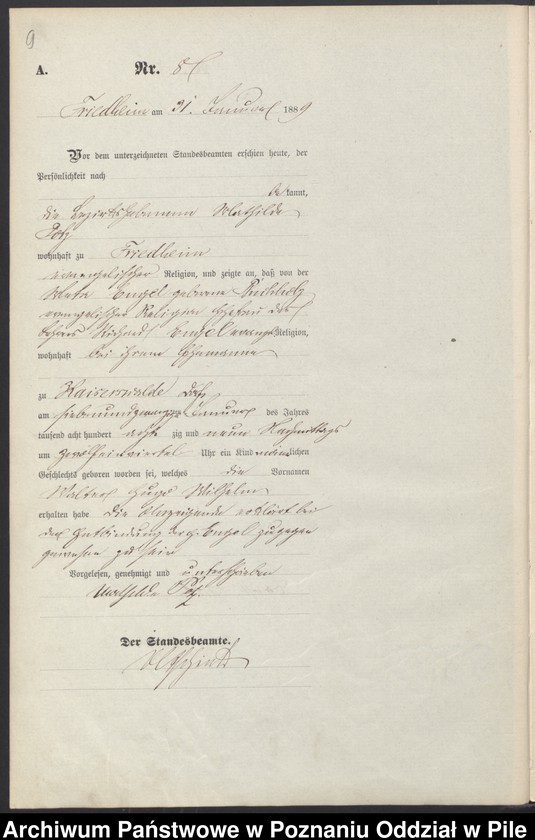 9
A. Nr. 8
Friedheim am 31. Januar 1889
Vor dem unterzeichneten Standesbeamten erschien heute, der
Persönlichkeit nach
be kannt,
die Bezirkshebamme Mathilde
wohnhaft zu Friedheim
evangelischer Religion, und zeigte an, daß von der
Meta Engel geborene Buchholz
evangelischer Religion Ehefrau des
Richard Engel evangel. Religion,
wohnhaft bei ihrem Ehemanne
zu Kaiserswalde
am siebenundzwanzigsten Januar des Jahres
tausend acht hundert acht zig und neun Nachmittags
um Uhr ein Kind männlichen
Geschlechts geboren worden sei, welches die Vornamen
Walter Hugo Wilhelm
erhalten habe Die Anzeigende erklärt bei
der Entbindung der p. Engel zugegen
gewesen zu sein
Vorgelesen, genehmigt und unterschrieben
Mathilde
Der Standesbeamte.
Archiwum Państwowe w Poznaniu Oddział w Pile